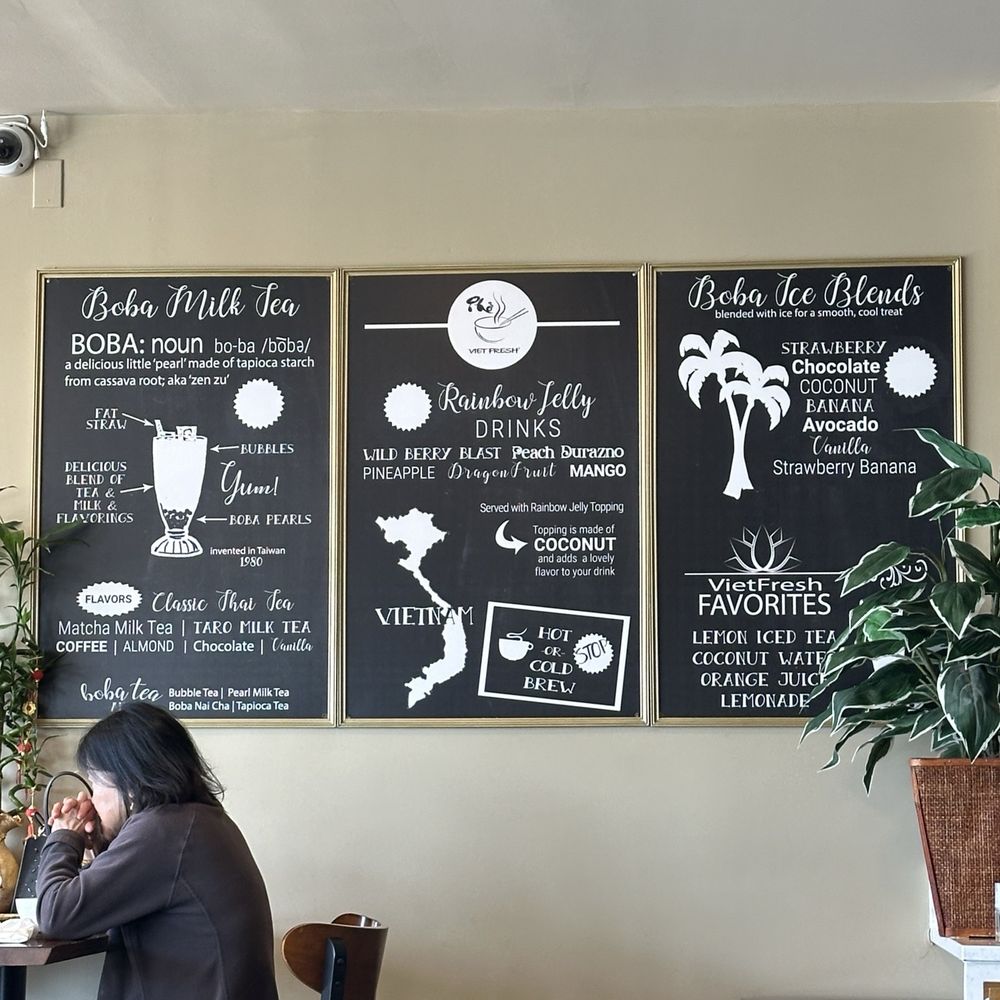 Boba Milk Tea
BOBA: noun bo-ba /bōbə/
a delicious little 'pearl' made of tapioca starch
from cassava root; aka 'zen zu'
FAT
STRAW
BUBBLES
DELICIOUS
BLEND OF
TEA &
MILK &
FLAVORINGS
Yum!
BOBA PEARLS
invented in Taiwan
1980
FLAVORS
Classic Thai Tea
Matcha Milk Tea | TARO MILK TEA
COFFEE | ALMOND | Chocolate | Vanilla
boba tea
Bubble Tea | Pearl Milk Tea
Boba Nai Cha | Tapioca Tea
Phở
VIET FRESH
Rainbow Jelly
DRINKS
WILD BERRY BLAST Peach Durazno
PINEAPPLE Dragon Fruit MANGO
Served with Rainbow Jelly Topping
Topping is made of
COCONUT
and adds a lovely
flavor to your drink
VIETNAM
HOT
-OR-
COLD
BREW
STOP
Boba Ice Blends
blended with ice for a smooth, cool treat
STRAWBERRY
Chocolate
COCONUT
BANANA
Avocado
Vanilla
Strawberry Banana
VietFresh
FAVORITES
LEMON ICED TEA
COCONUT WATE
ORANGE JUIC
LEMONADE